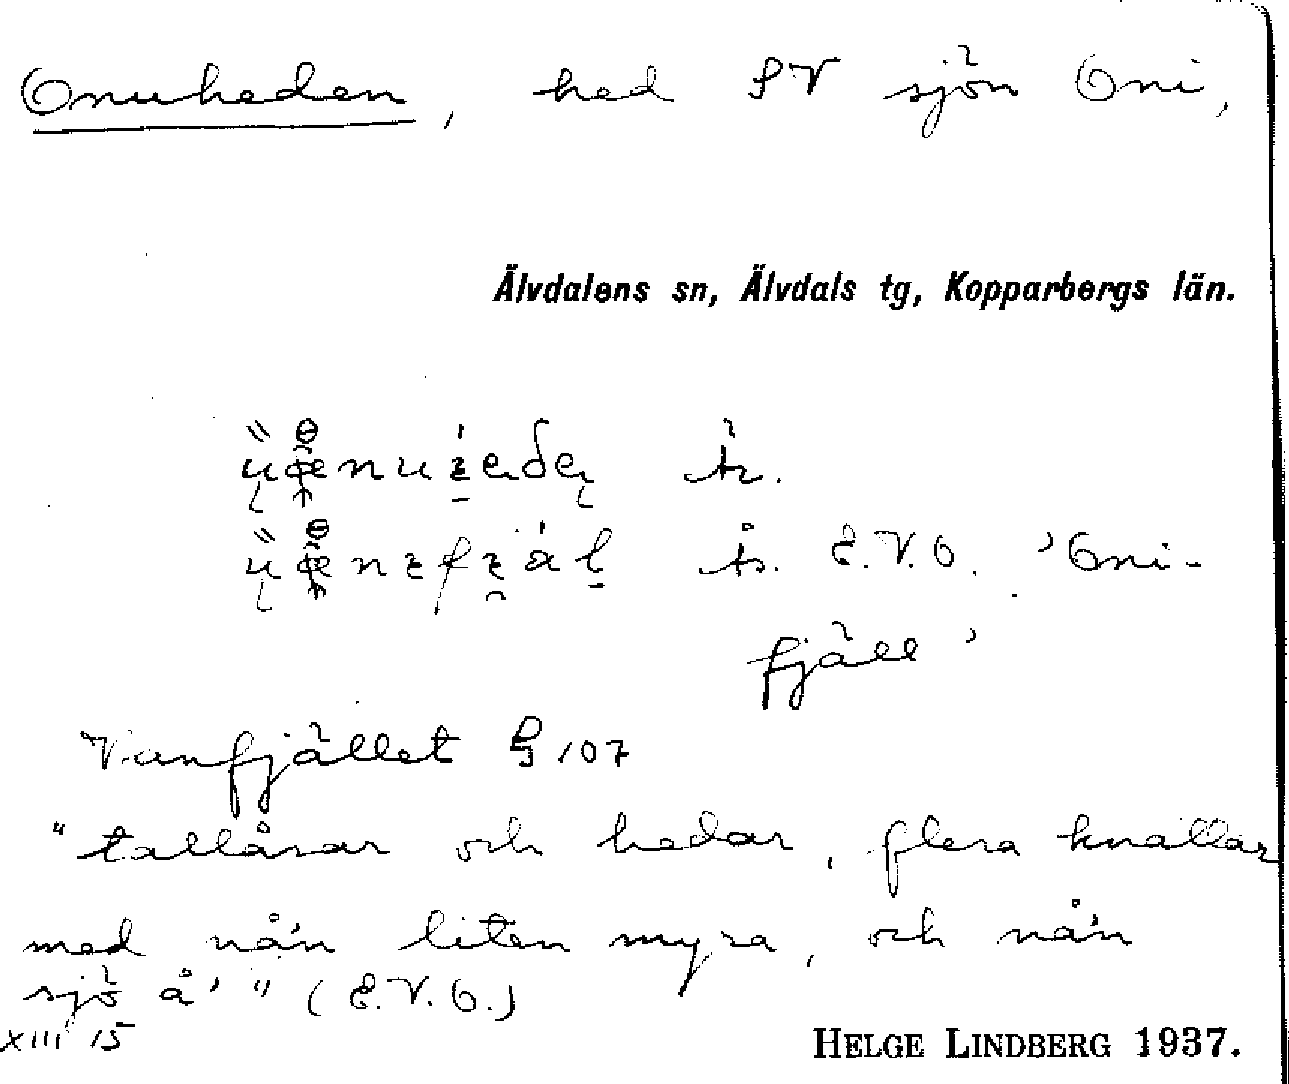 Onuheden, hed SV sjön Oni,
Älvdalens sn, Älvdals tg, Kopparbergs län.
E.V.O. 'Oni-
fjäll'
Vanfjället § 107
"tallåsar och hedar, flera knallar
med nå'n liten myra, och nå'n
sjö å'" (E.V.O.)
XIII 15
HELGE LINDBERG 1937.